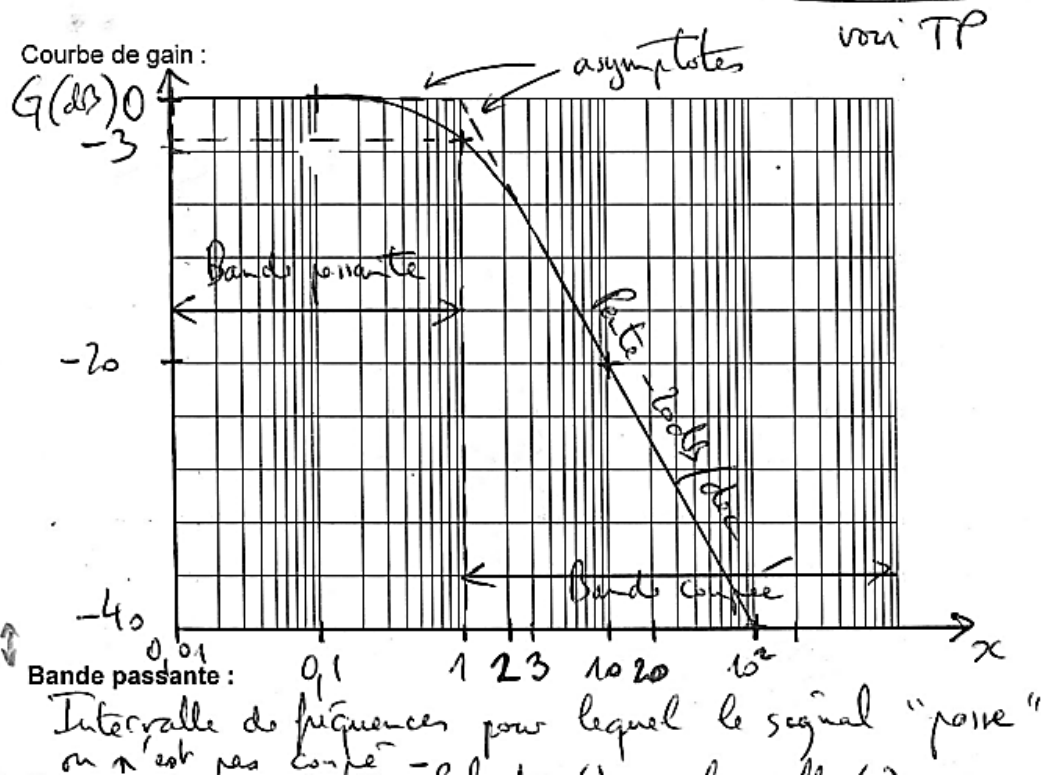 voir TP
Courbe de gain :
asymptotes
G(dB) 0
-3
Bande passante
-20
Pente -20dB/dec
Bande coupée
-40
0,01 0,1 1 2 3 10 20 10² x
Bande passante :
Intervalle de fréquences pour lequel le signal "passe"
ou n'est pas coupé -